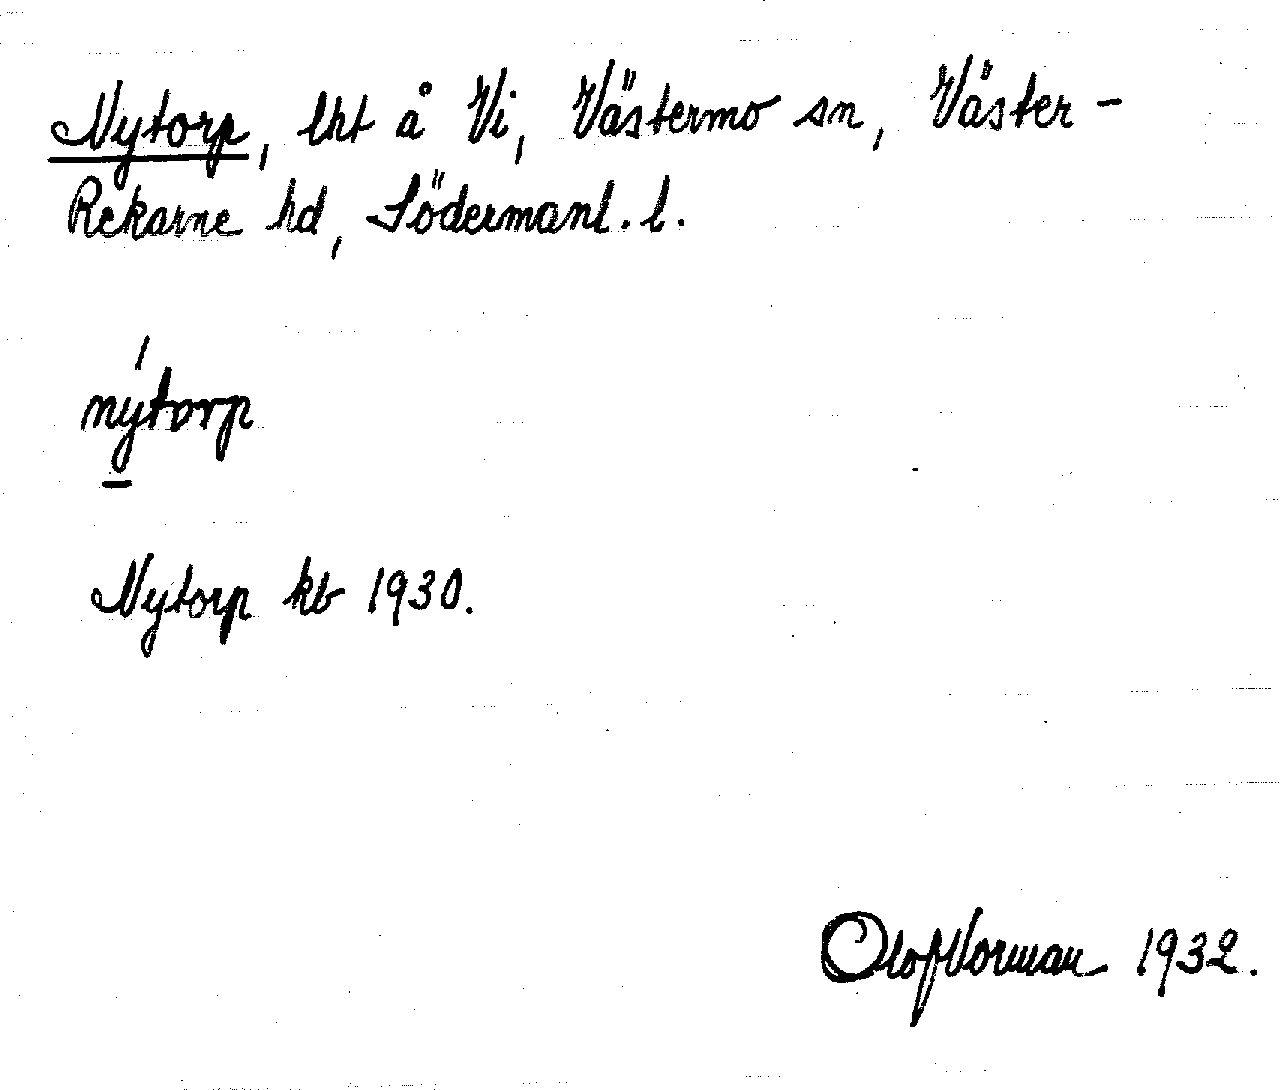 Nytorp, lht å Vi, Västermo sn, Väster-
Rekarne hd, Södermanl. l.
nýtorp
Nytorp kb 1930.
Olof Norman 1932.